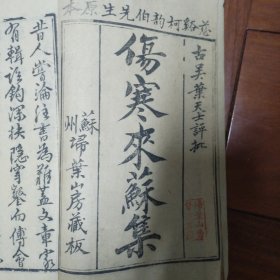 慈谿柯韵伯先生原本
古吴葉天士評批
傷寒來蘇集
蘇州掃葉山房藏板
昔人嘗論注書為難蓋文章家
有輯注鈎深抉隐穿鑿而傅會